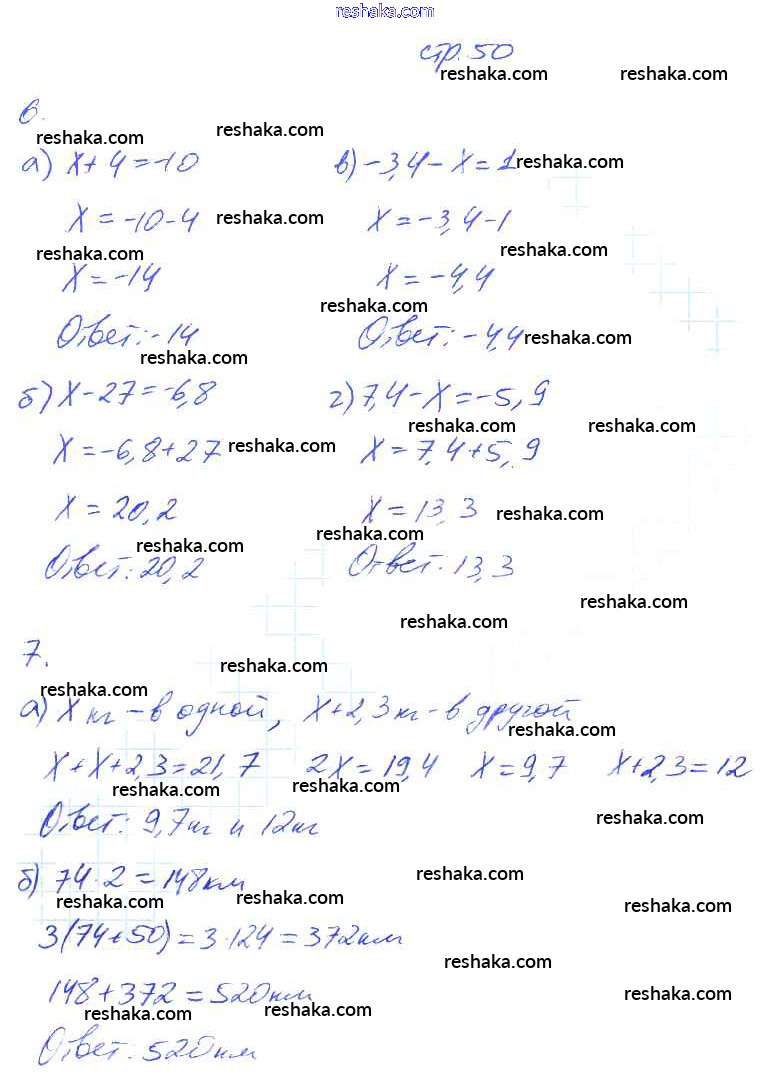 reshaka.com
стр. 50
reshaka.com reshaka.com
6.
reshaka.com reshaka.com
а) x + 4 = -10 в) -3,4 - x = 1 reshaka.com
x = -10 - 4 reshaka.com x = -3,4 - 1
reshaka.com reshaka.com
x = -14 x = -4,4
reshaka.com
Ответ: -14 Ответ: -4,4 reshaka.com
reshaka.com
б) x - 27 = -6,8 г) 7,4 - x = -5,9
reshaka.com reshaka.com
x = -6,8 + 27 reshaka.com x = 7,4 + 5,9
x = 20,2 x = 13,3 reshaka.com
reshaka.com reshaka.com
Ответ: 20,2 Ответ: 13,3
reshaka.com
reshaka.com
7.
reshaka.com
reshaka.com
а) x кг - в одной, x + 2,3 кг - в другой
reshaka.com
x + x + 2,3 = 21,7 2x = 19,4 x = 9,7 x + 2,3 = 12
reshaka.com
Ответ: 9,7 кг и 12 кг reshaka.com
reshaka.com
б) 74 · 2 = 148 км
reshaka.com reshaka.com reshaka.com
3(74 + 50) = 3 · 124 = 372 км
reshaka.com
148 + 372 = 520 км reshaka.com
reshaka.com reshaka.com
Ответ: 520 км